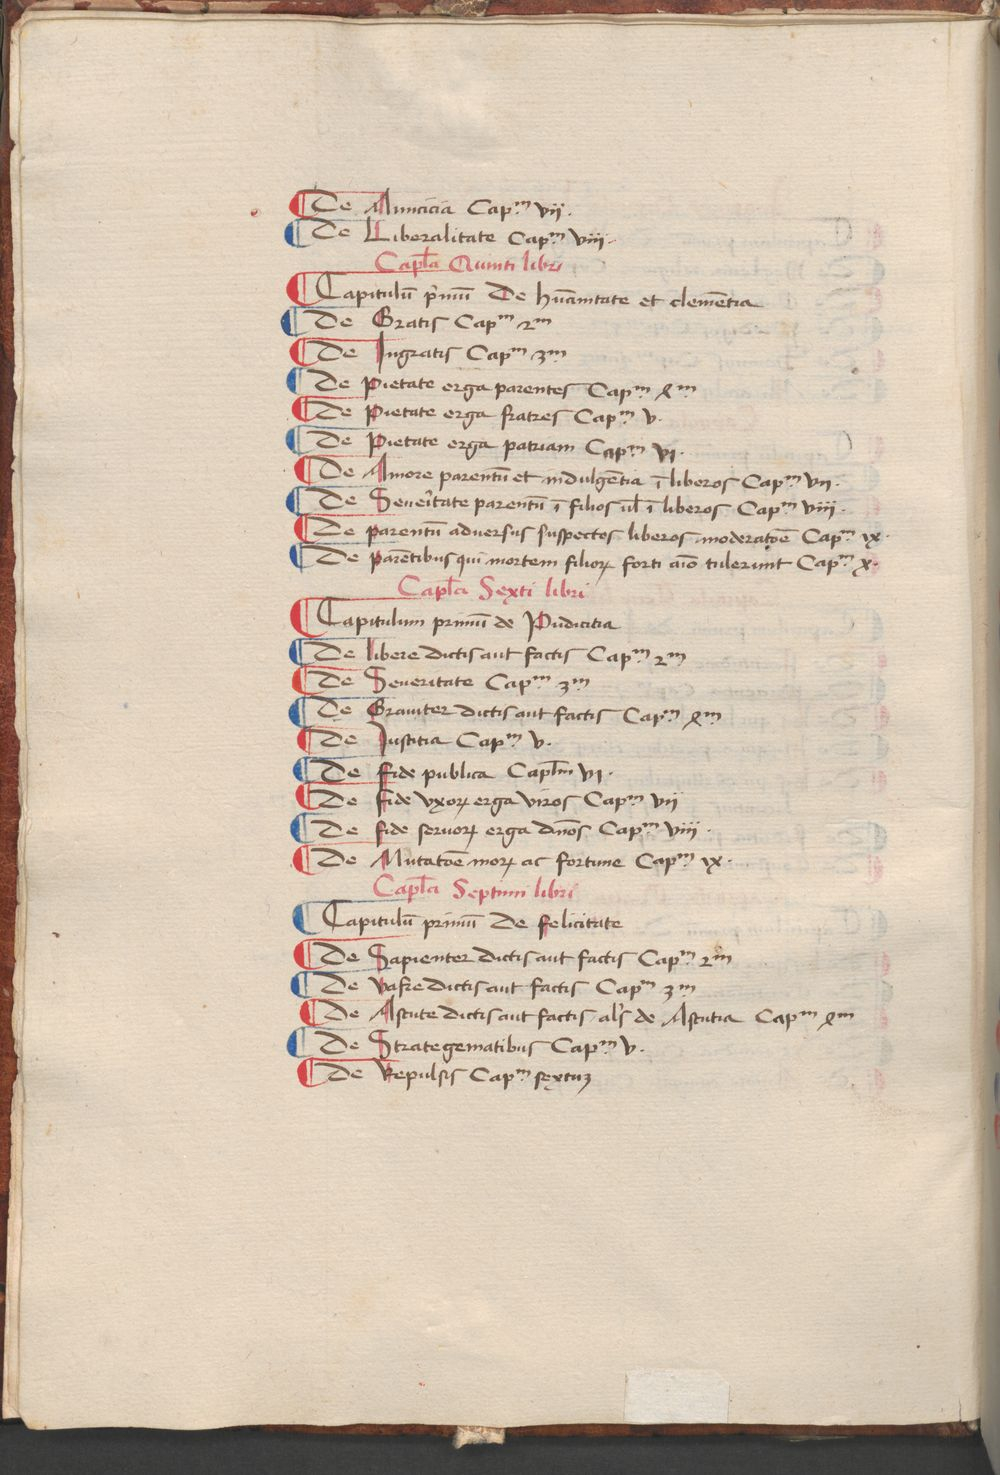 ¶ De Amicicia Cap.m vij.
¶ De Liberalitate Cap.m viij.
Capl̅a Quinti libri
¶ Capitulu̅ p̅rimu̅ De hu̅anitate et cleme̅tia
¶ De Gratis Cap.m 2m
¶ De Ingratis Cap.m 3m
¶ De Pietate erga parentes Cap.m ꝝm
¶ De Pietate erga fratres Cap.m v.
¶ De Pietate erga patriam Cap.m vi.
¶ De Amore parentu̅ et indulge̅tia i̅ liberos Cap.m vij.
¶ De Seueritate parentu̅ i̅ filios ul̅ i̅ liberos Cap.m viij.
¶ De parentu̅ aduersus suspectos liberos moderato̅e Cap.m ix.
¶ De pare̅tibus qui mortem filioꝝ forti ai̅o tulerunt Cap.m x.
Capl̅a Sexti libri
¶ Capitulum primu̅ de Pudicitia
¶ De libere dictis aut factis Cap.m 2m
¶ De Seueritate Cap.m 3m
¶ De Grauiter dictis aut factis Cap.m ꝝm
¶ De Justitia Cap.m v.
¶ De fide publica Capl̅m vi.
¶ De fide vxoꝝ erga viros Cap.m vij
¶ De fide seruoꝝ erga dn̅os Cap.m viij.
¶ De Mutato̅e moꝝ ac fortune Cap.m ix.
Capl̅a Septimi libri
¶ Capitulu̅ primu̅ De felicitate
¶ De Sapienter dictis aut factis Cap.m 2m
¶ De vafre dictis aut factis Cap.m 3m
¶ De Astute dictis aut factis al̅s de Astutia Cap.m ꝝm
¶ De Strategematibus Cap.m v.
¶ De Repulsis Cap.m sextuꝫ